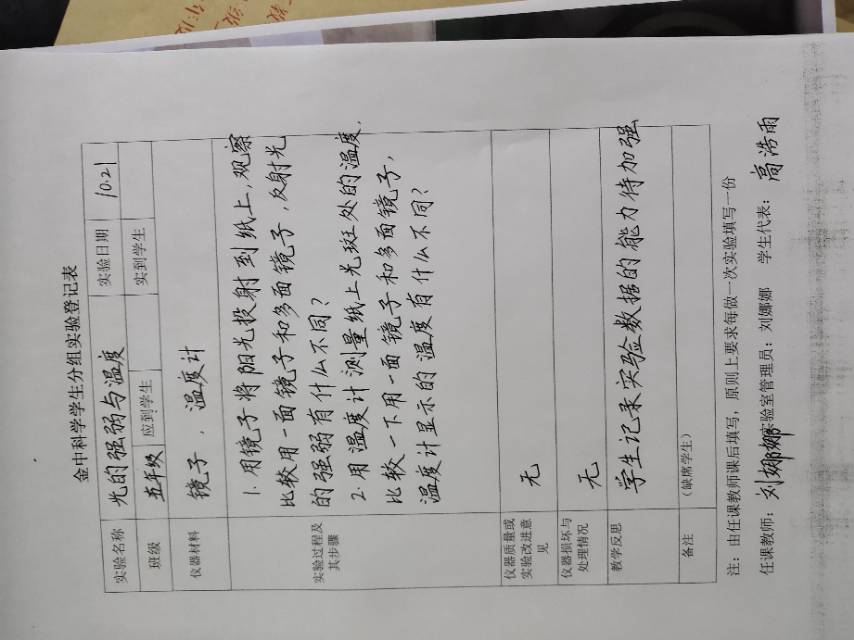 金中科学学生分组实验登记表
实验名称 光的强弱与温度 实验日期 10.21
班级 五年级 应到学生 实到学生
仪器材料 镜子，温度计
实验过程及其步骤
1.用镜子将阳光投射到纸上，观察
比较用一面镜子和多面镜子，反射光
的强弱有什么不同？
2.用温度计测量纸上光斑处的温度，
比较一下用一面镜子和多面镜子，
温度计显示的温度有什么不同？
仪器质量或实验改进意见 无
仪器损坏与处理情况 无
教学反思 学生记录实验数据的能力待加强
备注 （缺席学生）
注：由任课教师课后填写，原则上要求每做一次实验填写一份
任课教师：刘娜娜 实验室管理员：刘娜娜 学生代表：高浩雨